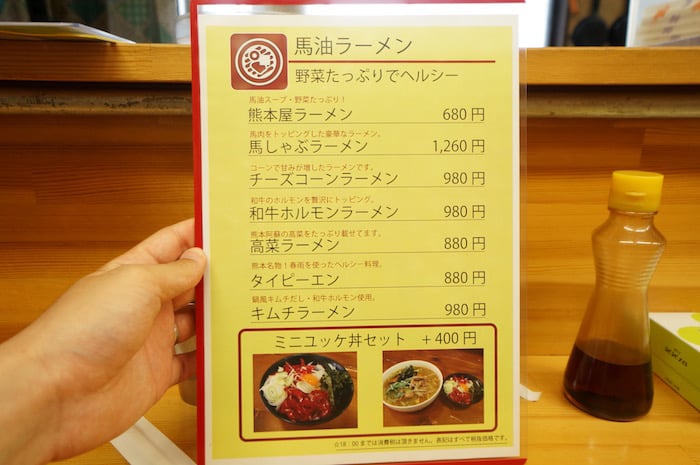 馬油ラーメン
野菜たっぷりでヘルシー
馬油スープ・野菜たっぷり！
熊本屋ラーメン 680円
馬肉をトッピングした豪華なラーメン。
馬しゃぶラーメン 1,260円
コーンで甘みが増したラーメンです。
チーズコーンラーメン 980円
和牛のホルモンを贅沢にトッピング。
和牛ホルモンラーメン 980円
熊本阿蘇の高菜をたっぷり載せてます。
高菜ラーメン 880円
熊本名物！春雨を使ったヘルシー料理。
タイピーエン 880円
鍋風キムチだし・和牛ホルモン使用。
キムチラーメン 980円
ミニユッケ丼セット +400円
18：00までは消費税は頂きません。表記はすべて税抜価格です。